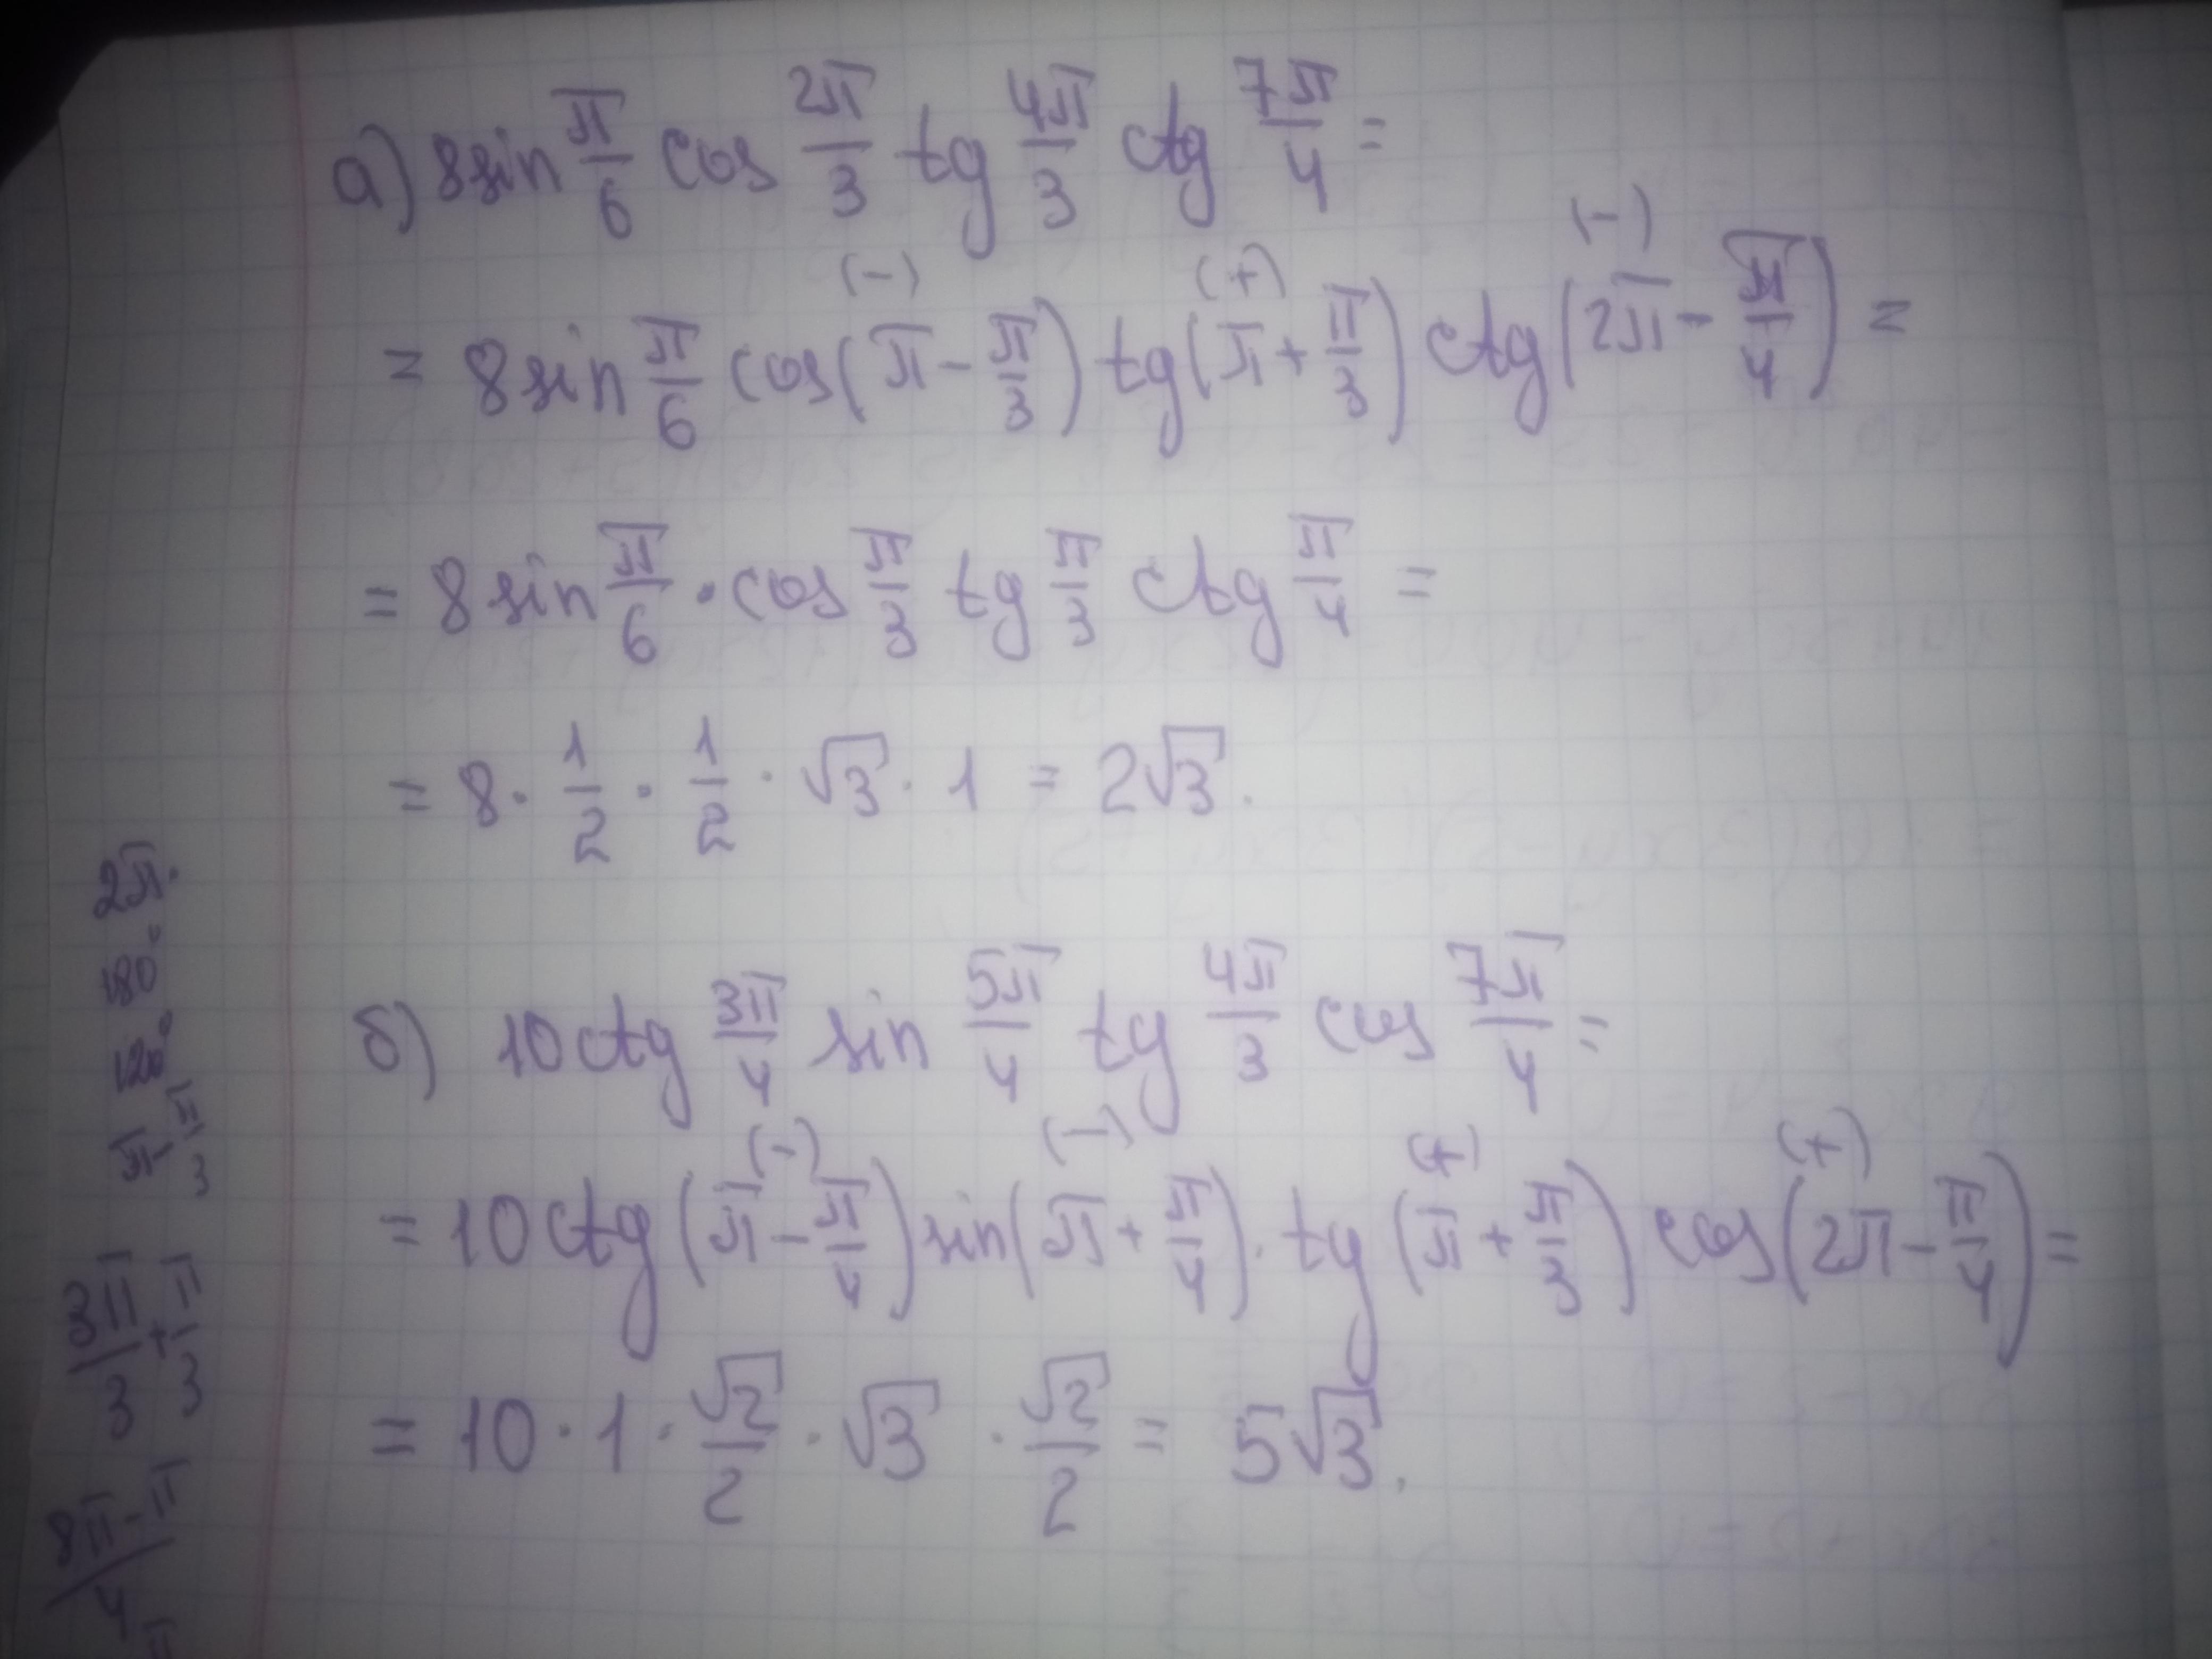 а) 8sin π/6 cos 2π/3 tg 4π/3 ctg 7π/4 =
(-) (+) (-)
= 8sin π/6 cos(π - π/3) tg(π + π/3) ctg(2π - π/4) =
= 8sin π/6 · cos π/3 tg π/3 ctg π/4 =
= 8 · 1/2 · 1/2 · √3 · 1 = 2√3.
б) 10ctg 3π/4 sin 5π/4 tg 4π/3 cos 7π/4 =
(-) (-) (+) (+)
= 10ctg(π - π/4) sin(π + π/4) · tg(π + π/3) cos(2π - π/4) =
= 10 · 1 · √2/2 · √3 · √2/2 = 5√3.
2π·
180°
120°
π - π/3
3π/3 + π/3
8π - π/4